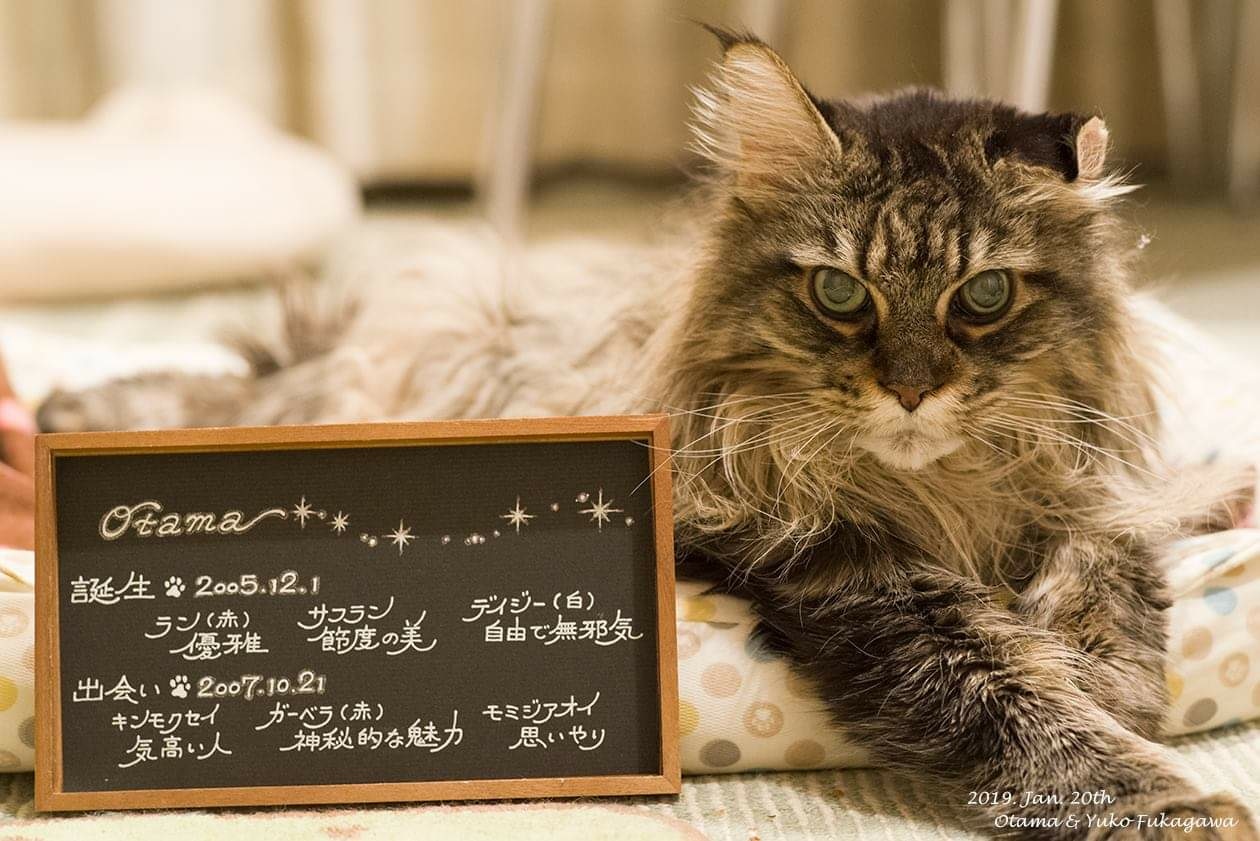 Otama
誕生 2005.12.1
ラン(赤) サフラン デイジー(白)
優雅 節度の美 自由で無邪気
出会い 2007.10.21
キンモクセイ ガーベラ(赤) モミジアオイ
気高い人 神秘的な魅力 思いやり
2019. Jan. 20th
Otama & Yuko Fukagawa